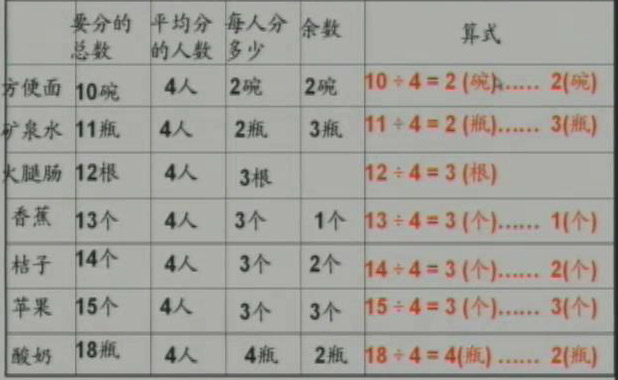 要分的总数 平均分的人数 每人分多少 余数 算式
方便面 10碗 4人 2碗 2碗 10÷4=2(碗)…… 2(碗)
矿泉水 11瓶 4人 2瓶 3瓶 11÷4=2(瓶)…… 3(瓶)
火腿肠 12根 4人 3根 12÷4=3(根)
香蕉 13个 4人 3个 1个 13÷4=3(个)…… 1(个)
桔子 14个 4人 3个 2个 14÷4=3(个)…… 2(个)
苹果 15个 4人 3个 3个 15÷4=3(个)…… 3(个)
酸奶 18瓶 4人 4瓶 2瓶 18÷4=4(瓶)…… 2(瓶)